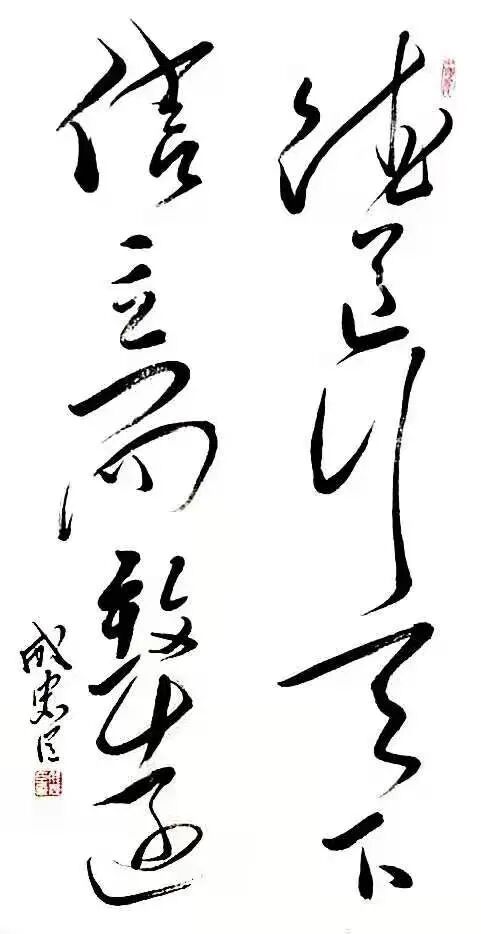 德道行天下
信立而 遠
成忠臣